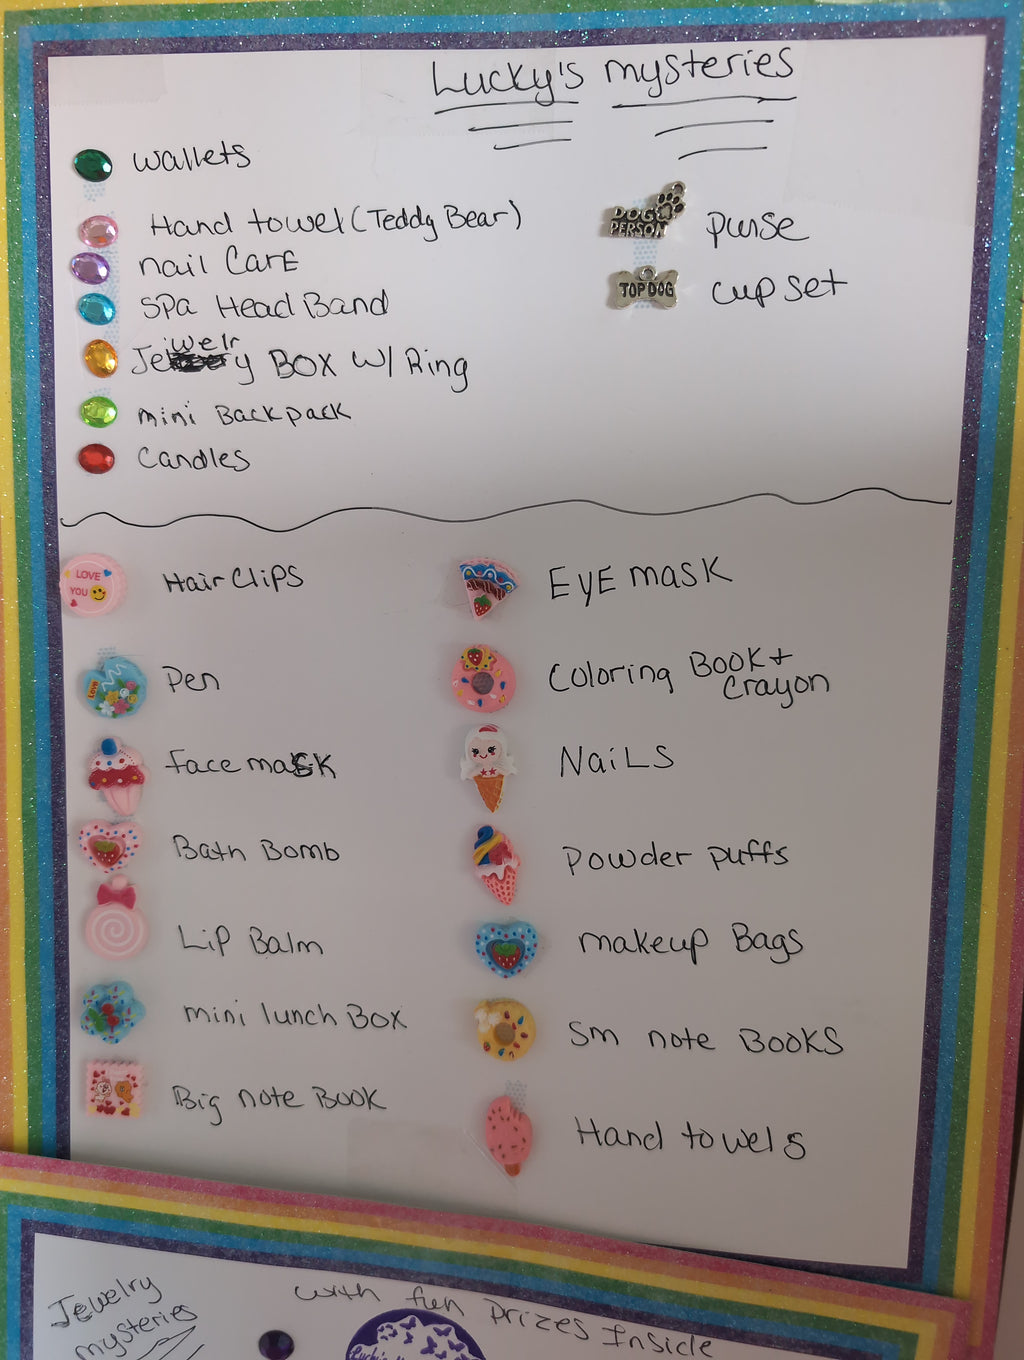 Lucky's mysteries
wallets
Hand towel (Teddy Bear)
nail Care
Spa Head Band
Jewelry Box w/ Ring
mini Backpack
Candles
DOG
PERSON
purse
TOP DOG
cup set
LOVE
YOU
Hair Clips
Love
Pen
face mask
Bath Bomb
Lip Balm
mini lunch Box
Big note Book
Eye mask
Coloring Book +
Crayon
Nails
Powder puffs
makeup Bags
Sm note Books
Hand towels
Jewelry
mysteries
with fun prizes Inside